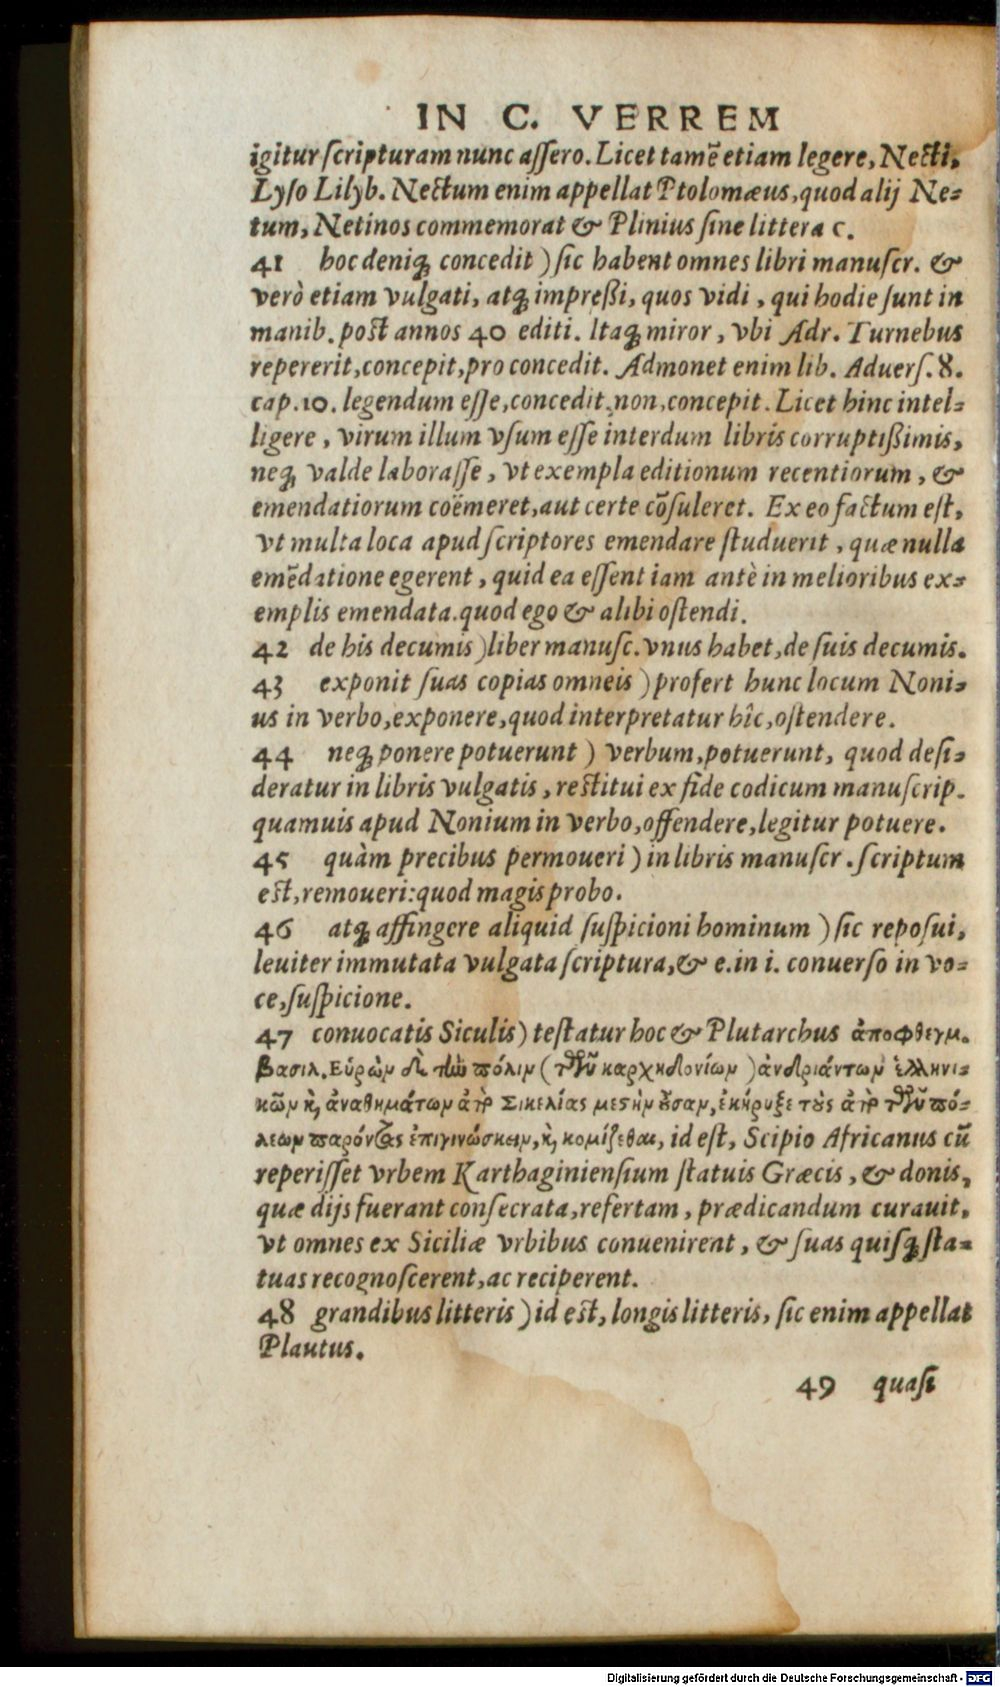 IN C. VERREM
igitur ſcripturam nunc aſſero. Licet tamẽ etiam legere, Necti,
Lyſo Lilyb. Nectum enim appellat Ptolomæus, quod alij Ne-
tum, Netinos commemorat & Plinius ſine littera c.
41 hoc deniq; concedit ) ſic habent omnes libri manuſcr. &
verò etiam vulgati, atq; impreßi, quos vidi, qui hodie ſunt in
manib. poſt annos 40 editi. Itaq; miror, vbi Adr. Turnebus
repererit, concepit, pro concedit. Admonet enim lib. Aduerſ. 8.
cap. 10. legendum eſſe, concedit, non, concepit. Licet hinc intel-
ligere, virum illum vſum eſſe interdum libris corruptißimis,
neq; valde laboraſſe, vt exempla editionum recentiorum, &
emendatiorum coëmeret, aut certe cõſuleret. Ex eo factum eſt,
vt multa loca apud ſcriptores emendare ſtuduerit, quæ nulla
emẽdatione egerent, quid ea eſſent iam antè in melioribus ex-
emplis emendata. quod ego & alibi oſtendi.
42 de his decumis ) liber manuſc. vnus habet, de ſuis decumis.
43 exponit ſuas copias omneis ) profert hunc locum Noni-
us in verbo, exponere, quod interpretatur hîc, oſtendere.
44 neq; ponere potuerunt ) verbum, potuerunt, quod deſi-
deratur in libris vulgatis, reſtitui ex fide codicum manuſcrip.
quamuis apud Nonium in verbo, offendere, legitur potuere.
45 quàm precibus permoueri ) in libris manuſcr. ſcriptum
eſt, remoueri: quod magis probo.
46 atq; affingere aliquid ſuſpicioni hominum ) ſic repoſui,
leuiter immutata vulgata ſcriptura, & e. in i. conuerſo in vo-
ce, ſuſpicione.
47 conuocatis Siculis ) teſtatur hoc & Plutarchus ἀποφθεγμ.
βασιλ. Εὑρὼν δὲ τὴν πόλιν ( τῶν καρχηδονίων ) ἀνδριάντων ἑλληνι-
κῶν κ̀, ἀναθημάτων ἀπὸ Σικελίας μεστὴν οὖσαν, ἐκήρυξε τοὺς ἀπὸ τῶν πό-
λεων παρόντας ἐπιγινώσκειν, κ̀, κομίζεσθαι, id eſt, Scipio Africanus cũ
reperiſſet vrbem Karthaginienſium ſtatuis Græcis, & donis,
quæ dijs fuerant conſecrata, refertam, prædicandum curauit,
vt omnes ex Siciliæ vrbibus conuenirent, & ſuas quiſq; ſta-
tuas recognoſcerent, ac reciperent.
48 grandibus litteris ) id eſt, longis litteris, ſic enim appellat
Plautus.
49 quaſi
Digitalisierung gefördert durch die Deutsche Forschungsgemeinschaft - DFG